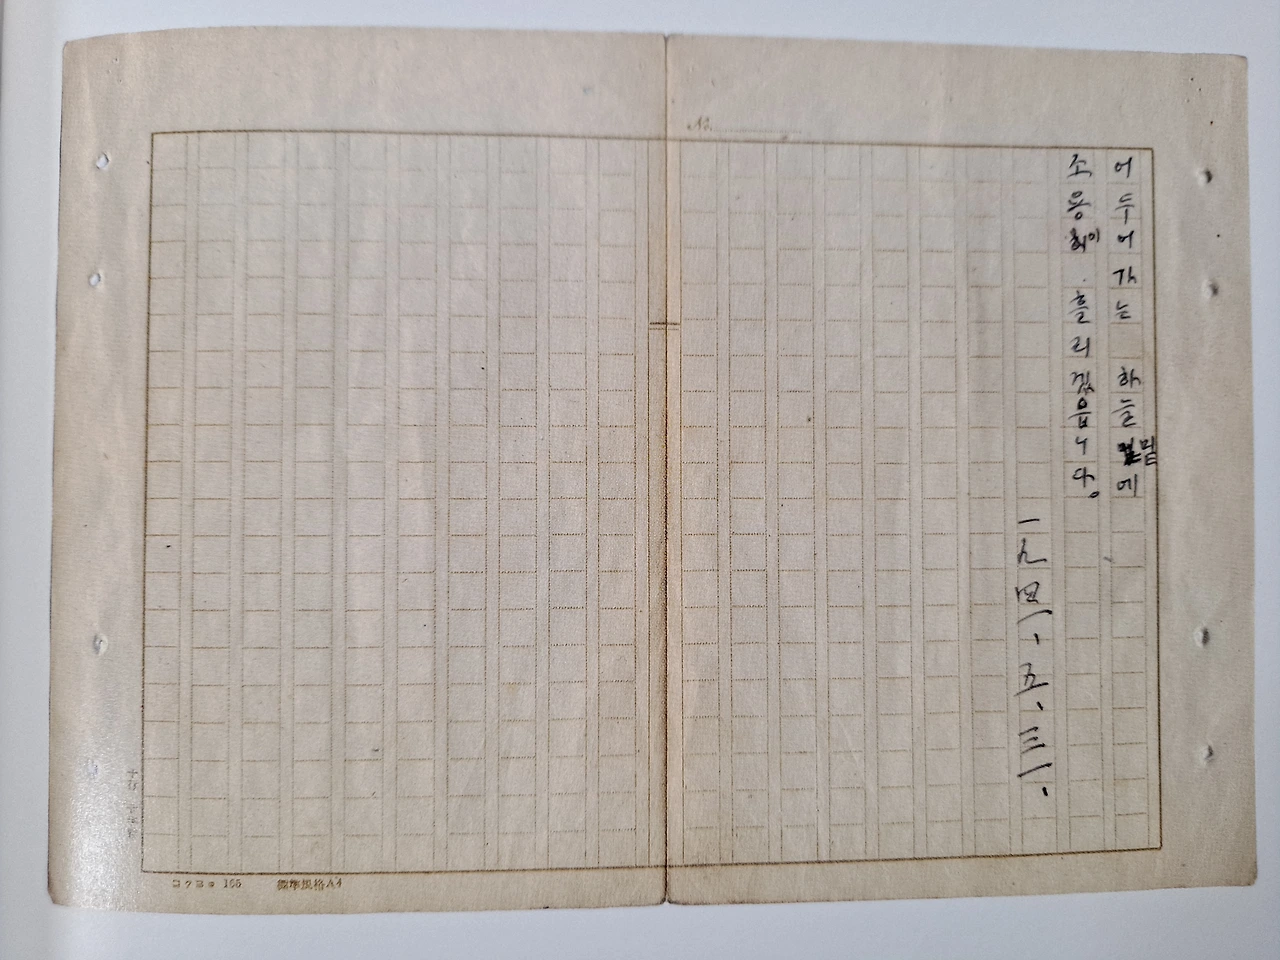 어두어가는 하늘밑에
조용이 흘리겠읍니다。
一九四一、五、三一、
№
コクヨ 165 標準規格A4